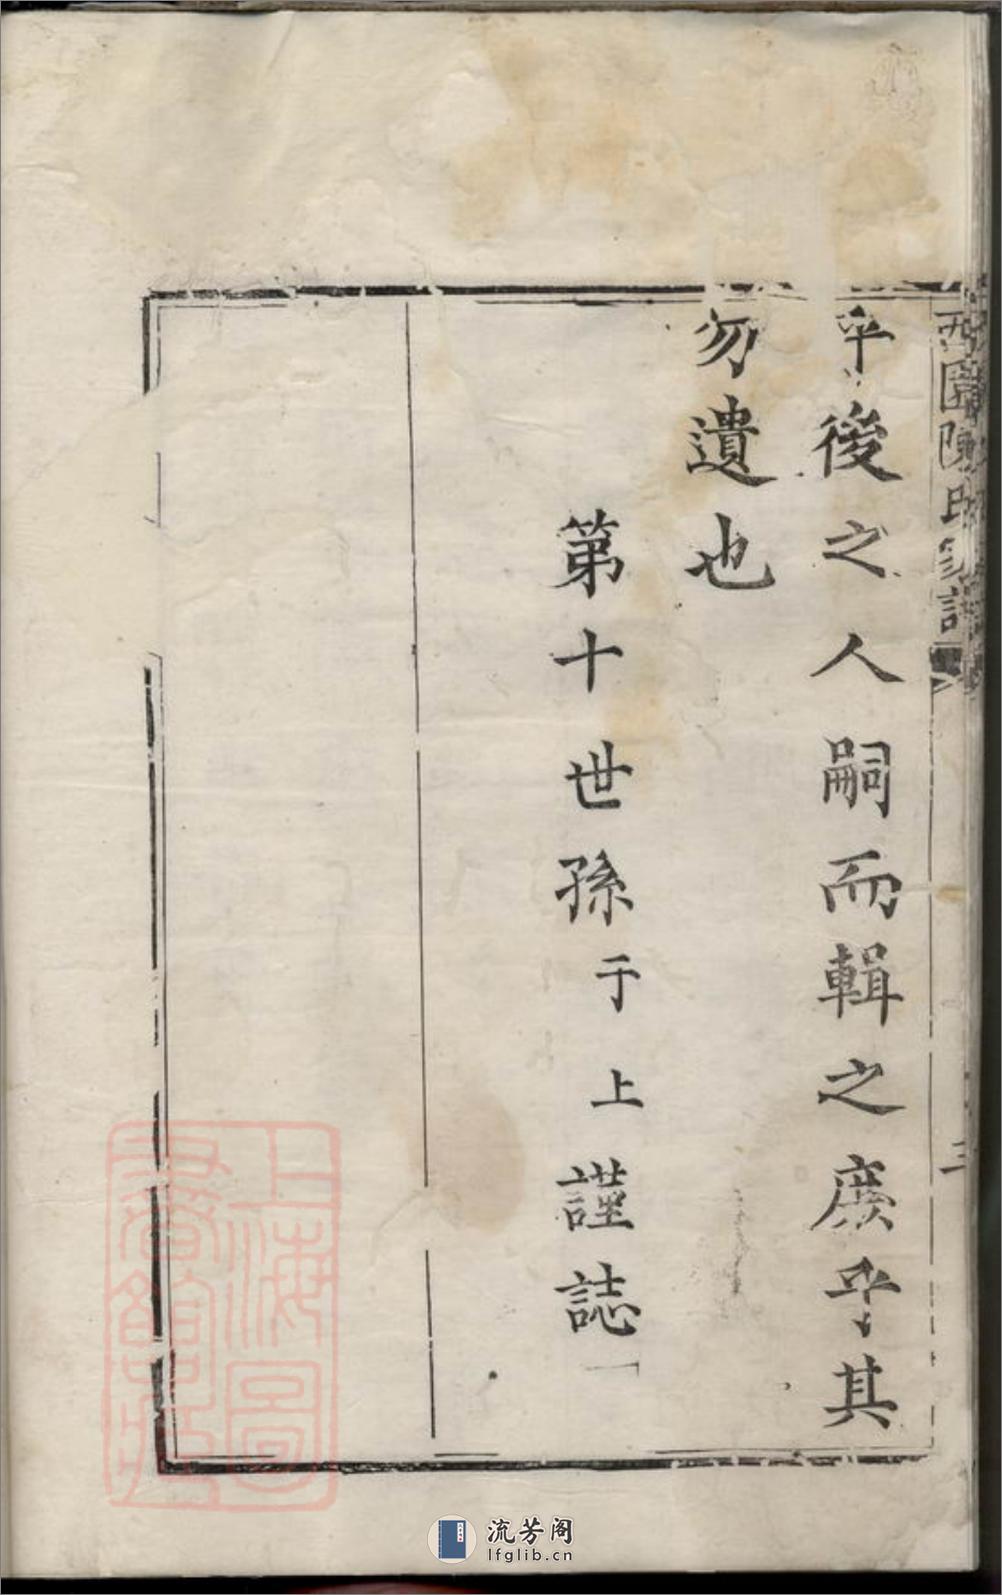 西園陳氏家譜
三
乎後之人嗣而輯之庶乎其
勿遺也
第十世孫于上謹誌
上海圖
書館藏
流芳阁
lfglib.cn